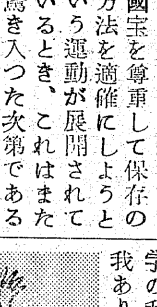 國宝を尊重して保存の
方法を適確にしようと
いう運動が展開されて
いるとき、これはまた
驚き入つた次第である
学の
我あり